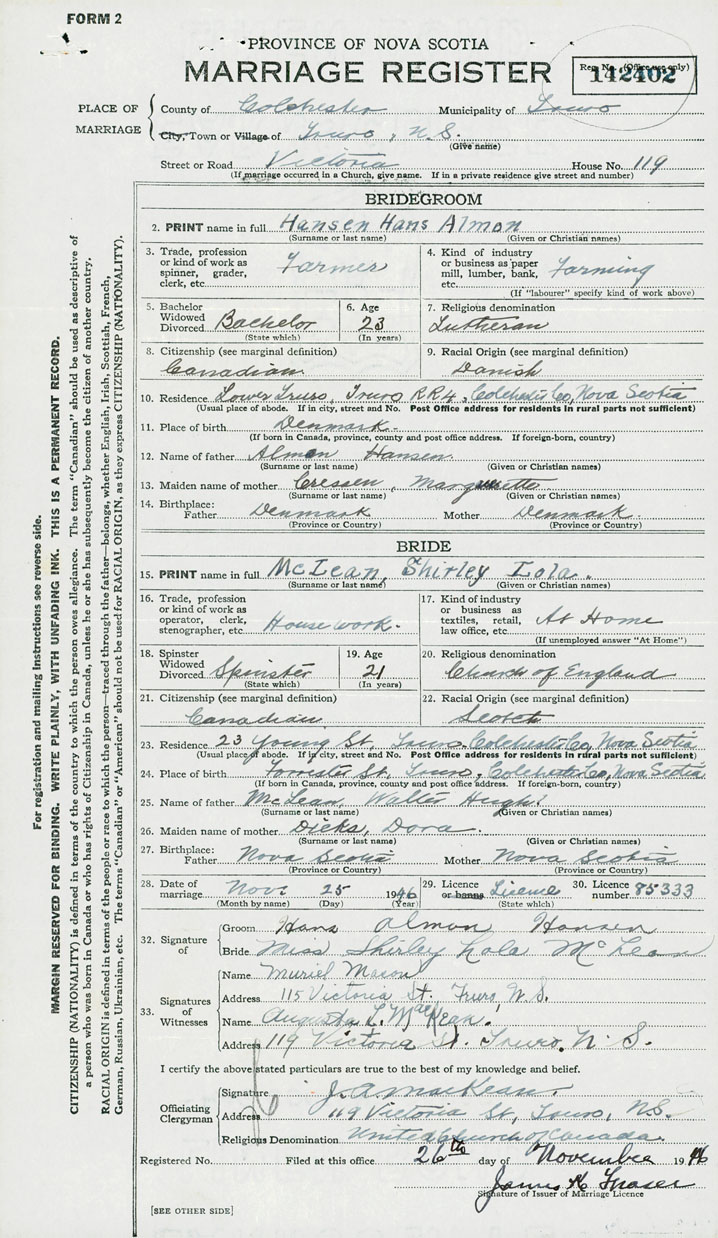 FORM 2
PROVINCE OF NOVA SCOTIA
MARRIAGE REGISTER
Reg. No. (Office use only)
112402
PLACE OF MARRIAGE
County of Colchester Municipality of Truro
City, Town or Village of Truro, N.S.
(Give name)
Street or Road Victoria House No. 119
(If marriage occurred in a Church, give name. If in a private residence give street and number)
BRIDEGROOM
2. PRINT name in full Hansen Hans Almon
(Surname or last name) (Given or Christian names)
3. Trade, profession or kind of work as spinner, grader, clerk, etc. Farmer
4. Kind of industry or business as paper mill, lumber, bank, etc. Farming
(If "labourer" specify kind of work above)
5. Bachelor Widowed Divorced Bachelor
(State which)
6. Age 23
(In years)
7. Religious denomination
Lutheran
8. Citizenship (see marginal definition)
Canadian
9. Racial Origin (see marginal definition)
Danish
10. Residence Lower Truro, Truro RR4, Colchester Co, Nova Scotia
(Usual place of abode. If in city, street and No. Post Office address for residents in rural parts not sufficient)
11. Place of birth Denmark.
(If born in Canada, province, county and post office address. If foreign-born, country)
12. Name of father Almon Hansen
(Surname or last name) (Given or Christian names)
13. Maiden name of mother Cressen,
(Surname or last name) (Given or Christian names)
14. Birthplace:
Father Denmark Mother Denmark.
(Province or Country) (Province or Country)
BRIDE
15. PRINT name in full McLean, Shirley Lola.
(Surname or last name) (Given or Christian names)
16. Trade, profession or kind of work as operator, clerk, stenographer, etc. House work.
17. Kind of industry or business as textiles, retail, law office, etc. At Home
(If unemployed answer "At Home")
18. Spinster Widowed Divorced Spinster
(State which)
19. Age 21
(In years)
20. Religious denomination
Church of England
21. Citizenship (see marginal definition)
Canadian
22. Racial Origin (see marginal definition)
Scotch
23. Residence 23 Young St, Truro, Colchester Co, Nova Scotia
(Usual place of abode. If in city, street and No. Post Office address for residents in rural parts not sufficient)
24. Place of birth Forrester St, Truro, Colchester Co, Nova Scotia
(If born in Canada, province, county and post office address. If foreign-born, country)
25. Name of father McLean, Walter Hugh
(Surname or last name) (Given or Christian names)
26. Maiden name of mother Dicks, Dora.
(Surname or last name) (Given or Christian names)
27. Birthplace:
Father Nova Scotia Mother Nova Scotia
(Province or Country) (Province or Country)
28. Date of marriage Nov. 25 1946
(Month by name) (Day) (Year)
29. Licence or banns Licence
(State which)
30. Licence number 85333
32. Signature of
Groom Hans Almon Hansen
Bride Miss Shirley Lola McLean
33. Signatures of Witnesses
Name Muriel Mason
Address 115 Victoria St. Truro, N.S.
Name Augusta L. MacKean.
Address 119 Victoria St. Truro, N.S.
I certify the above stated particulars are true to the best of my knowledge and belief.
Officiating Clergyman
Signature J. A. MacKean.
Address 119 Victoria St, Truro, N.S.
Religious Denomination United Church of Canada.
Registered No. Filed at this office 26th day of November 1946
James H. Fraser
Signature of Issuer of Marriage Licence
[SEE OTHER SIDE]
For registration and mailing Instructions see reverse side.
MARGIN RESERVED FOR BINDING. WRITE PLAINLY, WITH UNFADING INK. THIS IS A PERMANENT RECORD.
CITIZENSHIP (NATIONALITY) is defined in terms of the country to which the person owes allegiance. The term "Canadian" should be used as descriptive of
a person who was born in Canada or who has rights of Citizenship in Canada, unless he or she has subsequently become the citizen of another country.
RACIAL ORIGIN is defined in terms of the people or race to which the person—traced through the father—belongs, whether English, Irish, Scottish, French,
German, Russian, Ukrainian, etc. The terms "Canadian" or "American" should not be used for RACIAL ORIGIN, as they express CITIZENSHIP (NATIONALITY).